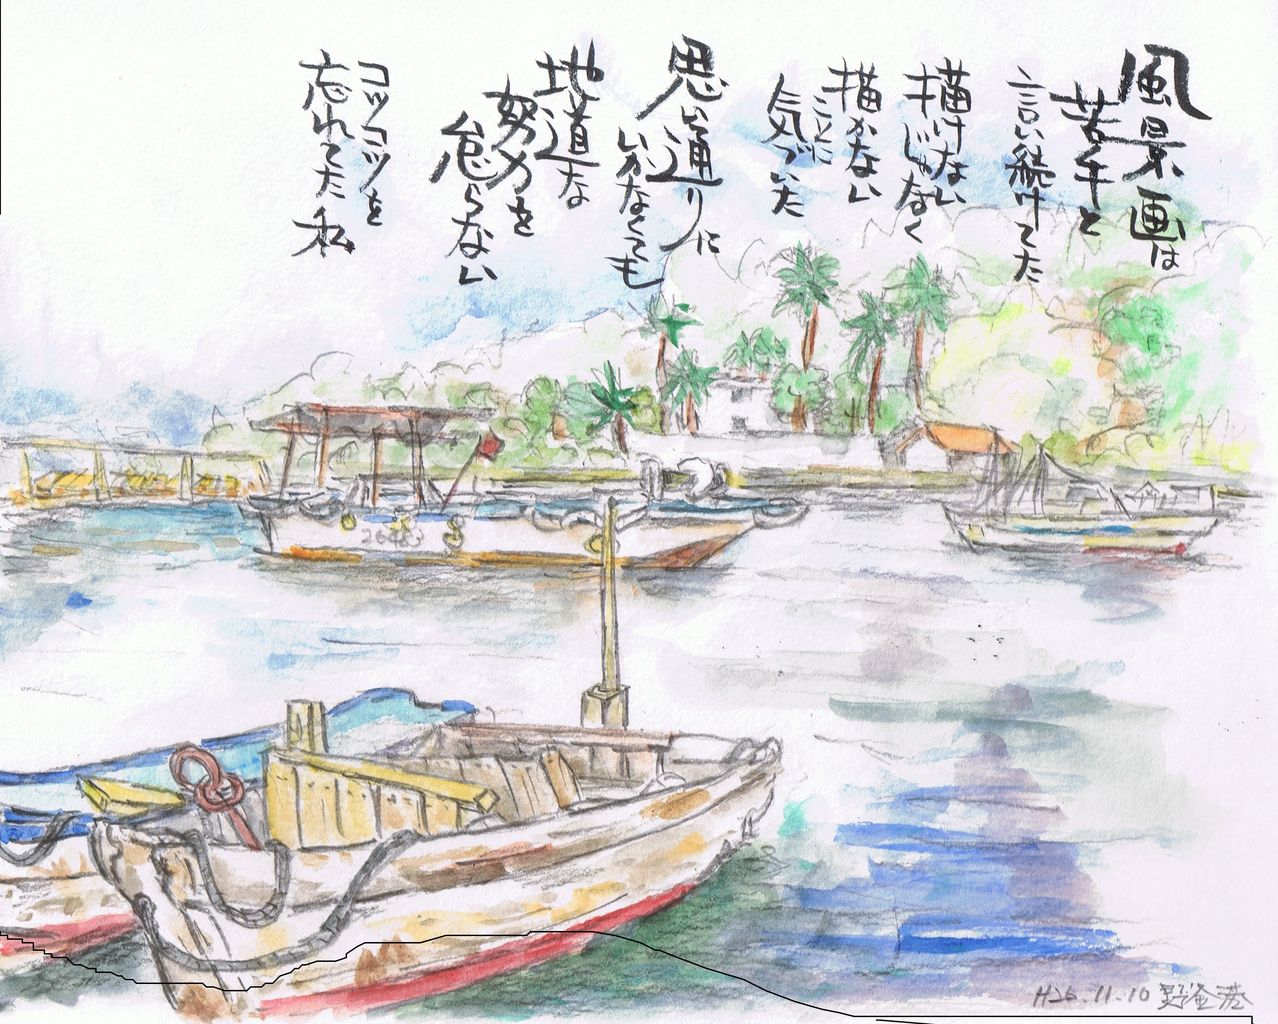 風景画は
苦手と
言い続けてた
描けない
んじゃなく
描かない
ことに
気づいた
思い通りに
いかなくても
地道な
努力を
怠らない
コツコツを
忘れてた私
H26.11.10 野釜港